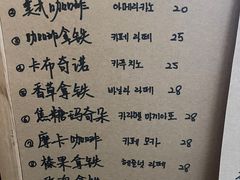 美式咖啡 아메리카노 20
② 咖啡拿铁 카페 라떼 25
③ 卡布奇诺 카푸치노 25
④ 香草拿铁 바닐라 라떼 28
⑤ 焦糖玛奇朵 카라멜 마끼아또 28
⑥ 摩卡咖啡 카페 모카 28
榛果拿铁 헤이즐넛 라떼 28
拿铁 28